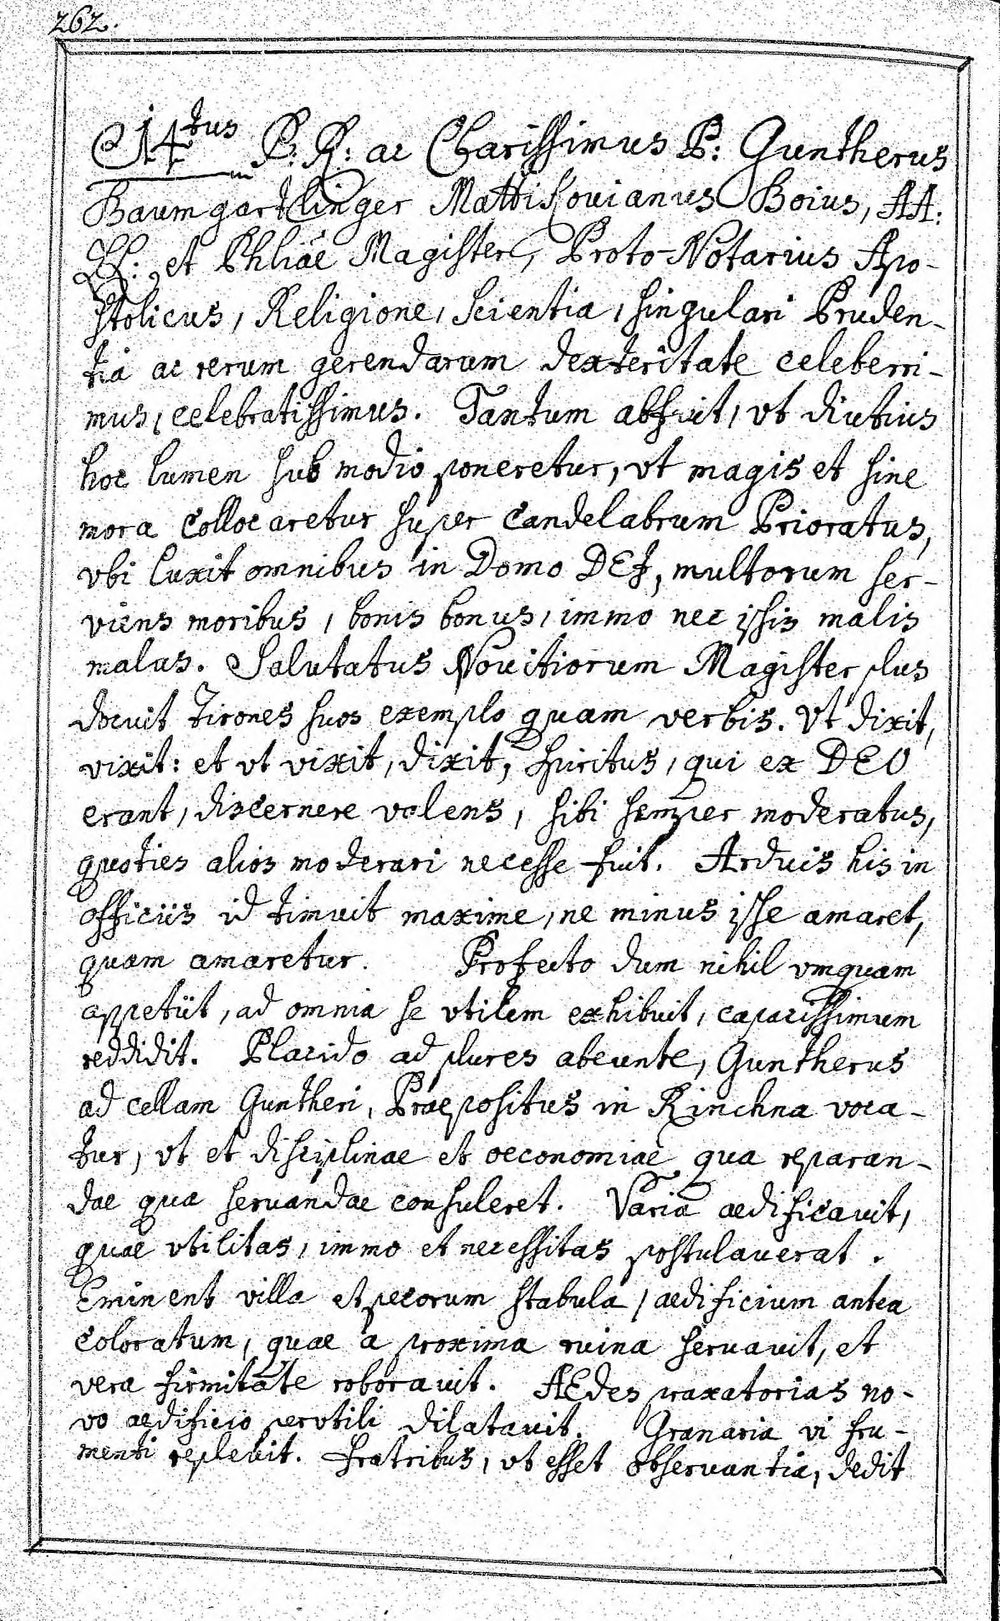 262.
14tus P: R: ac Charissimus P: Guntherus
Baumgartlinger Mattikouianus Boius, AA:
LL: et Phliae Magister, Proto-Notarius Apo-
stolicus, Religione, Scientia, singulari Pruden-
tia ac rerum gerendarum dexteritate celeberri-
mus, celebratissimus. Tantum abfuit, vt diutius
hoc lumen sub modio poneretur, vt magis et sine
mora collocaretur super Candelabrum Prioratus,
vbi luxit omnibus in Domo DEI, multorum ser-
viens moribus, bonis bonus, immo nec ipsis malis
malus. Salutatus Nouitiorum Magister plus
docuit tirones suos exemplo quam verbis. Vt dixit,
vixit: et vt vixit, dixit, spiritus, qui ex DEO
erant, discernere valens, sibi semper moderatus,
quoties alios moderari necesse fuit. Arduis his in
officiis id timuit maxime, ne minus ipse amaret,
quam amaretur. Profecto dum nihil vmquam
appetiit, ad omnia se vtilem exhibuit, capacissimum
reddidit. Placido ad plures abeunte, Guntherus
ad cellam Guntheri, Praepositus in Rinchna voca-
tur, vt et disciplinae et oeconomiae qua reparan-
dae qua seruandae consuleret. Varia aedificauit,
quae vtilitas, immo et necessitas postulauerat.
Eminent villa et pecorum stabula, aedificium antea
coloratum, quae a proxima ruina seruauit, et
vera firmitate roborauit. AEdes praxatorias no-
vo aedificio perutili dilatauit. Granaria vi fru-
menti repleuit. Fratribus, vt esset obseruantia, dedit